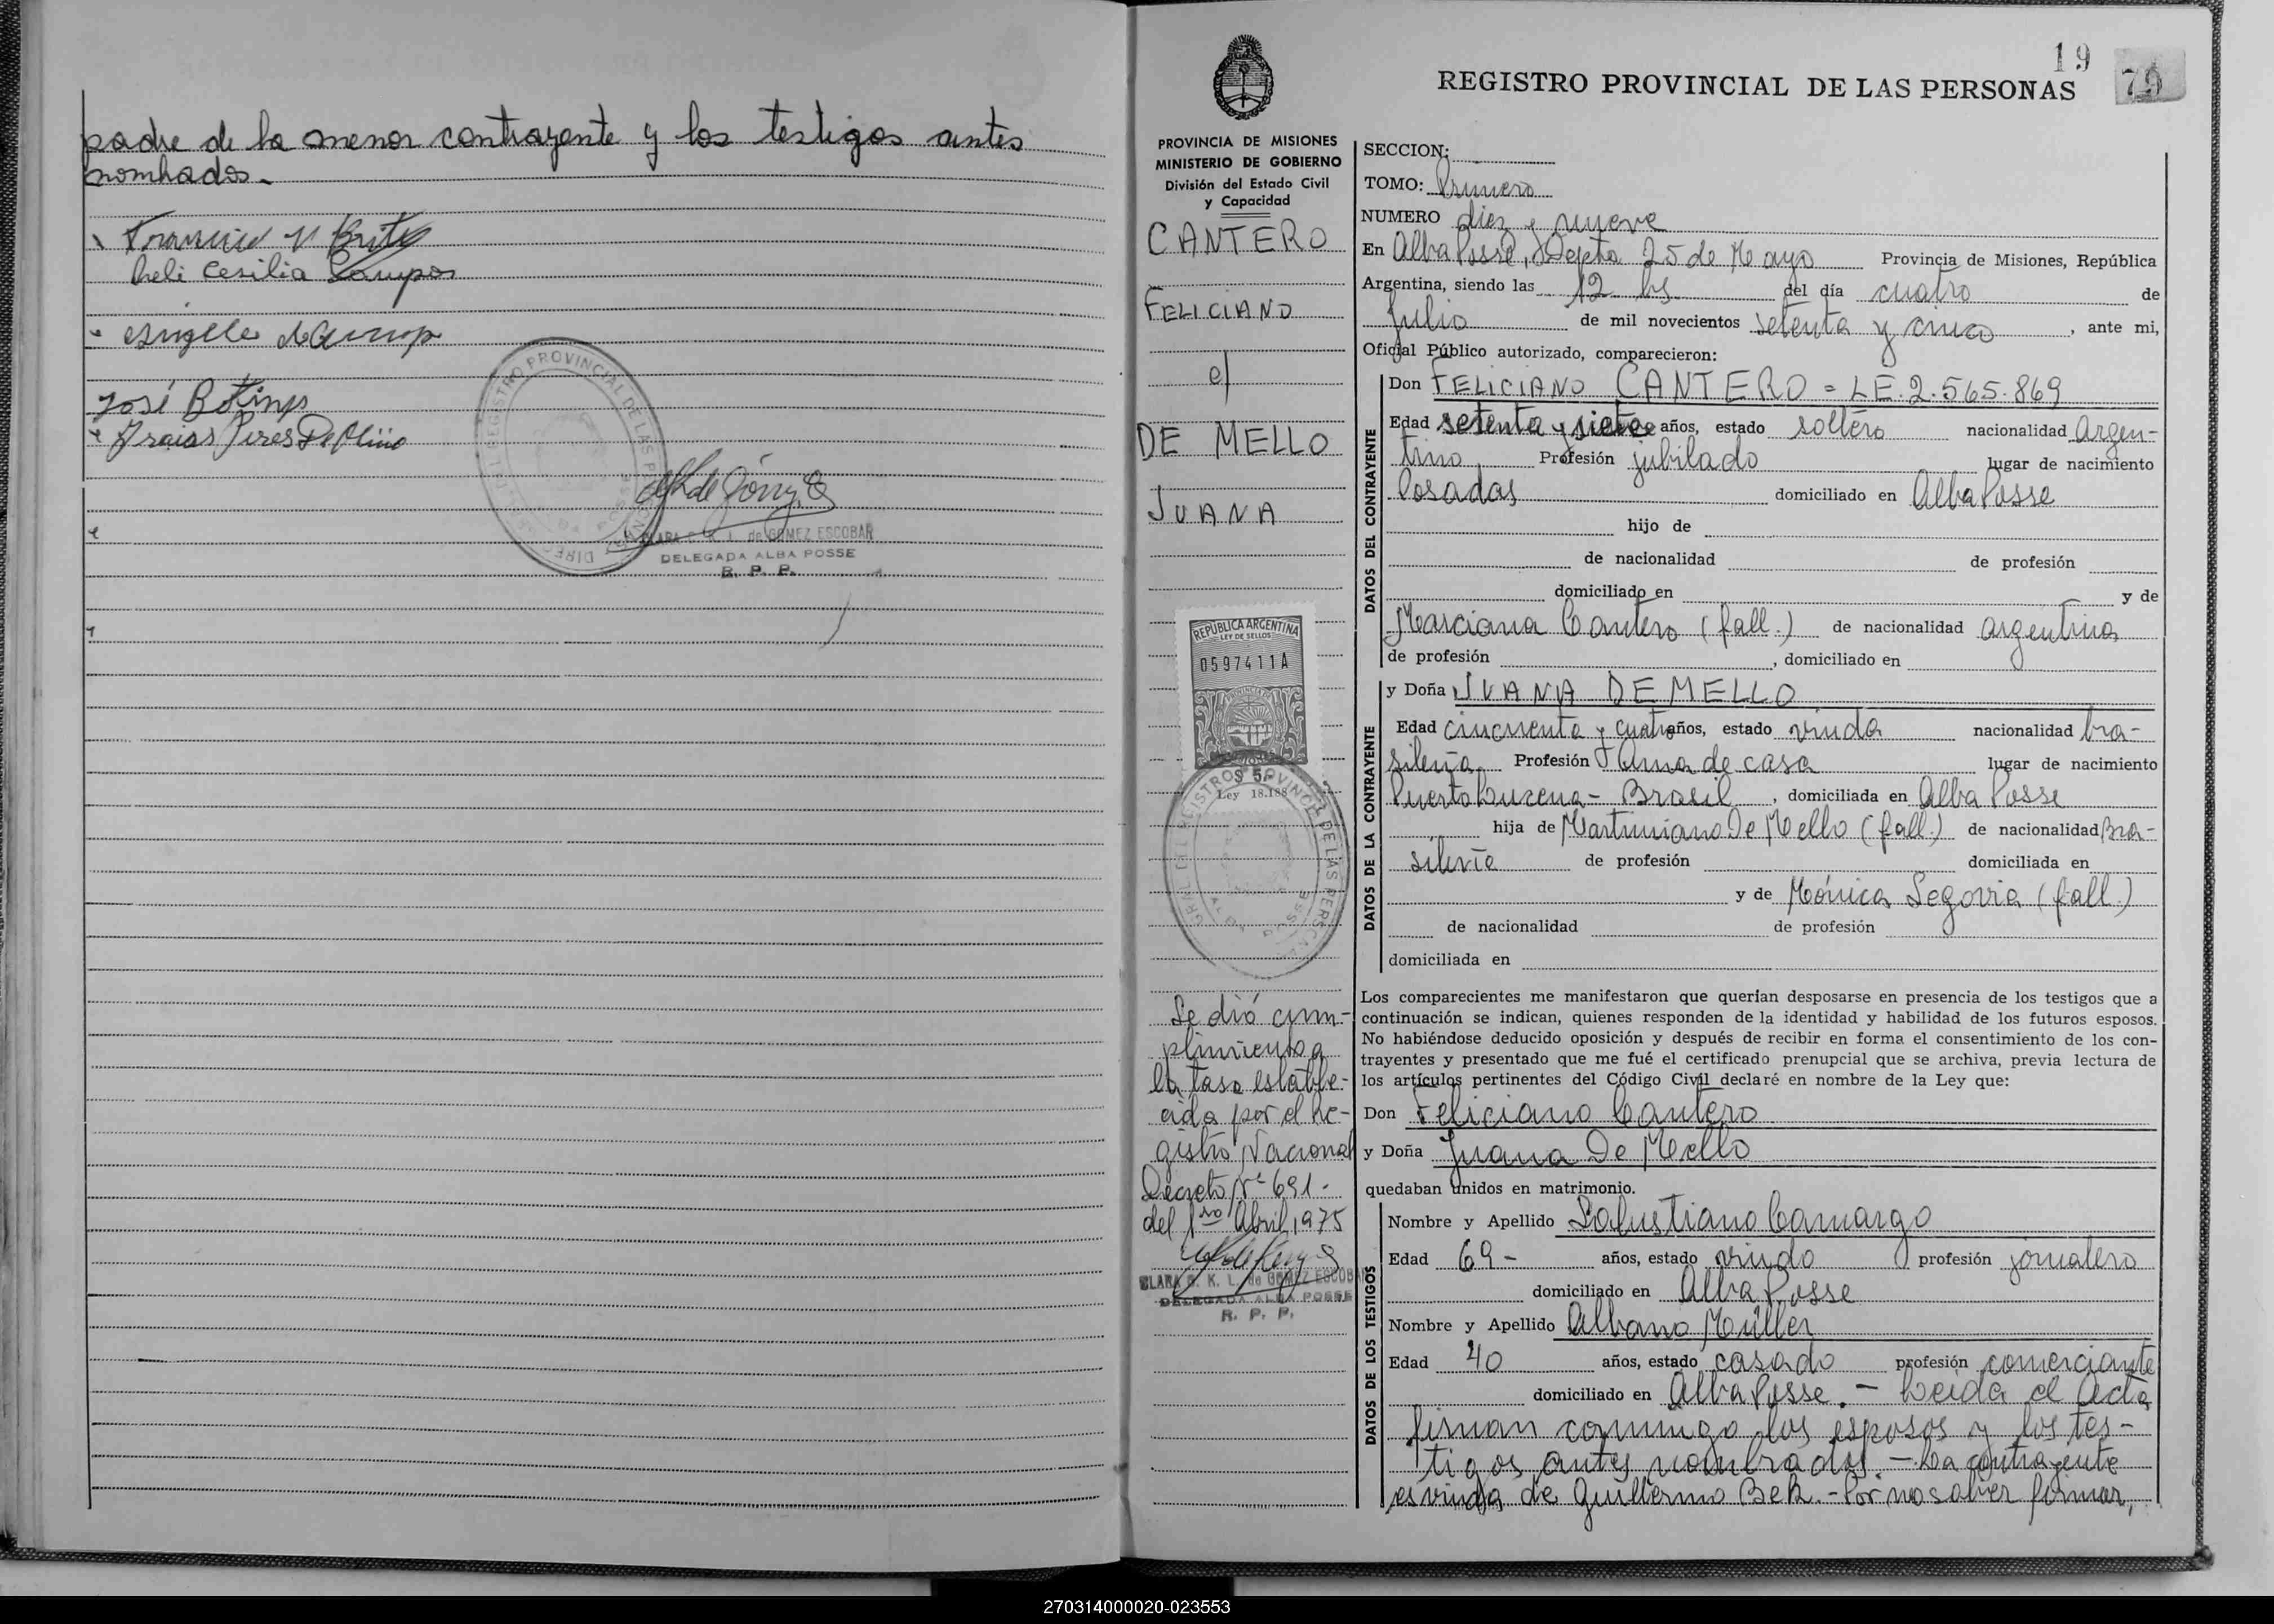 padre de la menor contrayente y los testigos antes
nombrados.-
Francisco
Cesilia Campos
José
Pires
REGISTRO PROVINCIAL DE LAS PERSONAS
GOMEZ ESCOBAR
DELEGADA ALBA POSSE
R. P. P.
19
79
REGISTRO PROVINCIAL DE LAS PERSONAS
PROVINCIA DE MISIONES
MINISTERIO DE GOBIERNO
División del Estado Civil
y Capacidad
CANTERO
FELICIANO
c/
DE MELLO
JUANA
REPUBLICA ARGENTINA
LEY DE SELLOS
0597411A
$ 5.
Ley 18.188
Se dió cum-
plimiento a
la tasa estable-
cida por el Re-
gistro Nacional
Decreto Nº 691-
del 1ro Abril 1975
CLARA G. K. L. de GOMEZ ESCOBAR
DELEGADA ALBA POSSE
R. P. P.
SECCION:
TOMO: Primero
NUMERO diez y nueve
En Alba Posse, Depto 25 de Mayo Provincia de Misiones, República
Argentina, siendo las 12 hs del día cuatro de
Julio de mil novecientos setenta y cinco, ante mi,
Oficial Público autorizado, comparecieron:
DATOS DEL CONTRAYENTE
Don FELICIANO CANTERO = LE. 2.565.869
Edad setenta y siete años, estado soltero nacionalidad Argen-
tino Profesión jubilado lugar de nacimiento
Posadas domiciliado en Alba Posse
hijo de
de nacionalidad de profesión
domiciliado en y de
Marciana Cantero (fall.) de nacionalidad argentina
de profesión , domiciliado en
DATOS DE LA CONTRAYENTE
y Doña JUANA DE MELLO
Edad cincuenta y cuatro años, estado viuda nacionalidad bra-
sileña Profesión Ama de casa lugar de nacimiento
Puerto Lucena - Brasil, domiciliada en Alba Posse
hija de Martiniano De Mello (fall.) de nacionalidad Bra-
sileña de profesión domiciliada en
y de Mónica Segovia (fall.)
de nacionalidad de profesión
domiciliada en
Los comparecientes me manifestaron que querían desposarse en presencia de los testigos que a
continuación se indican, quienes responden de la identidad y habilidad de los futuros esposos.
No habiéndose deducido oposición y después de recibir en forma el consentimiento de los con-
trayentes y presentado que me fué el certificado prenupcial que se archiva, previa lectura de
los artículos pertinentes del Código Civil declaré en nombre de la Ley que:
Don Feliciano Cantero
y Doña Juana De Mello
quedaban unidos en matrimonio.
DATOS DE LOS TESTIGOS
Nombre y Apellido Salustiano Camargo
Edad 69- años, estado viudo profesión jornalero
domiciliado en Alba Posse
Nombre y Apellido Albano Müller
Edad 40 años, estado casado profesión comerciante
domiciliado en Alba Posse.- Leida el Acta
firman conmigo los esposos y los tes-
tigos antes nombrados.- La contrayente
es viuda de Guillermo Bek.- Por no saber firmar,
270314000020-023553